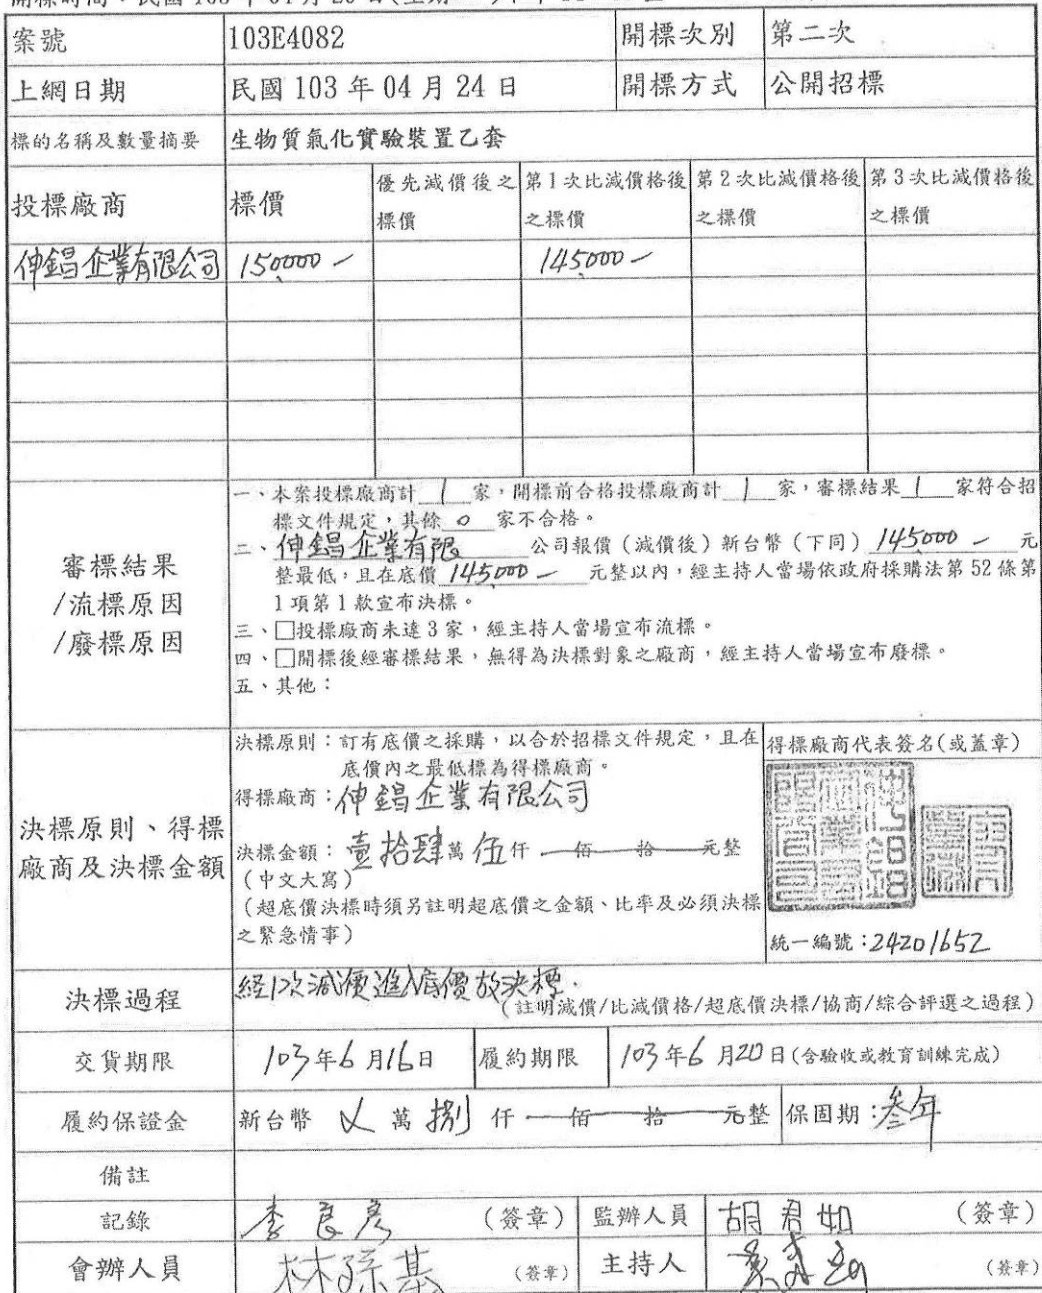 案號 103E4082 開標次別 第二次
上網日期 民國 103 年 04 月 24 日 開標方式 公開招標
標的名稱及數量摘要 生物質氣化實驗裝置乙套
投標廠商 標價 優先減價後之標價 第1次比減價格後之標價 第2次比減價格後之標價 第3次比減價格後之標價
伸錩企業有限公司 150,000- 145,000-
審標結果
/流標原因
/廢標原因
一、本案投標廠商計 1 家,開標前合格投標廠商計 1 家,審標結果 1 家符合招
標文件規定,其餘 0 家不合格。
二、伸錩企業有限 公司報價(減價後)新台幣(下同) 145,000- 元
整最低,且在底價 145,000- 元整以內,經主持人當場依政府採購法第 52 條第
1 項第 1 款宣布決標。
三、□投標廠商未達 3 家,經主持人當場宣布流標。
四、□開標後經審標結果,無得為決標對象之廠商,經主持人當場宣布廢標。
五、其他:
決標原則、得標
廠商及決標金額
決標原則:訂有底價之採購,以合於招標文件規定,且在
底價內之最低標為得標廠商。
得標廠商:伸錩企業有限公司
決標金額:壹拾肆萬伍仟 佰 拾 元整
(中文大寫)
(超底價決標時須另註明超底價之金額、比率及必須決標
之緊急情事)
得標廠商代表簽名(或蓋章)
統一編號:24201652
決標過程 經1次減價進入底價故決標.
(註明減價/比減價格/超底價決標/協商/綜合評選之過程)
交貨期限 103年6月16日 履約期限 103年6月20日(含驗收或教育訓練完成)
履約保證金 新台幣 ㄨ 萬 捌 仟 佰 拾 元整 保固期:叁年
備註
記錄 李良彥 (簽章) 監辦人員 胡君如 (簽章)
會辦人員 林孫基 (簽章) 主持人 (簽章)